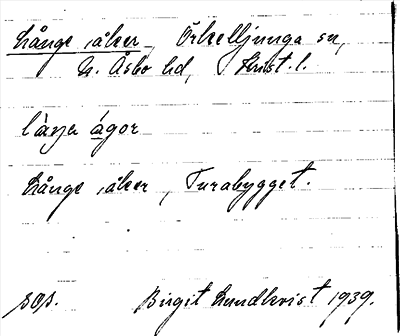 Långe åker, Örkelljunga sn,
N. Åsbo hd, Krist. l.
långa ågor
Långe åker, Turabygget.
sos.
Birgit Lundkvist 1939.